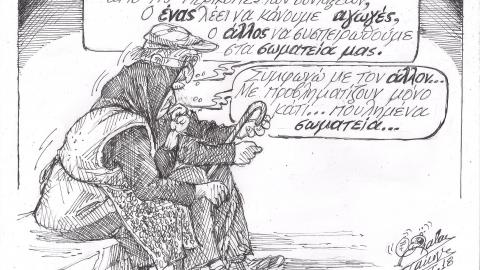 από τις περικοπές των συντάξεων,
Ο ένας λέει να κάνουμε αγωγές,
ο άλλος να συσπειρωθούμε
στα σωματεία μας.
Συμφωνώ με τον άλλον...
Με προβληματίζουν μόνο
κάτι... πουλημένα
σωματεία...
18